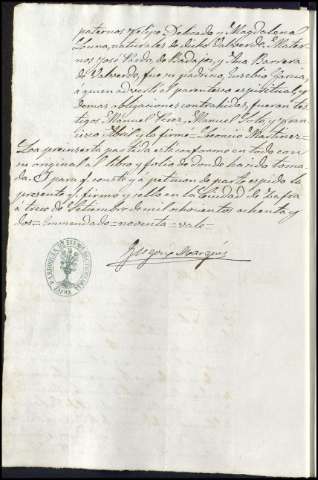 paternos Felipe Delicado y Magdalena
Luna, naturales de dicho Valverde: Mater-
nos José Rubio de Badajoz, y Ana Barrera
de Valverde, fue su padrino, Eusebio Garcia,
á quien advertí el parentesco espiritual y
demas obligaciones contrahidas, fueron tes-
tigos Manuel Perez, Manuel y Fran-
cisco Abril y lo firmé = Leoncio Martinez =
Los preinserta partida está conforme en todo con
su original al libro y folio de donde ha sido toma-
da. Y para q.e conste y á peticion de parte espido la
presente q.e firmo y sello en la Ciudad de Zafra
á tres de Setiembre de mil ochocientos ochenta y
dos = Enmendado = noventa = vale =
Gregorio Marqués